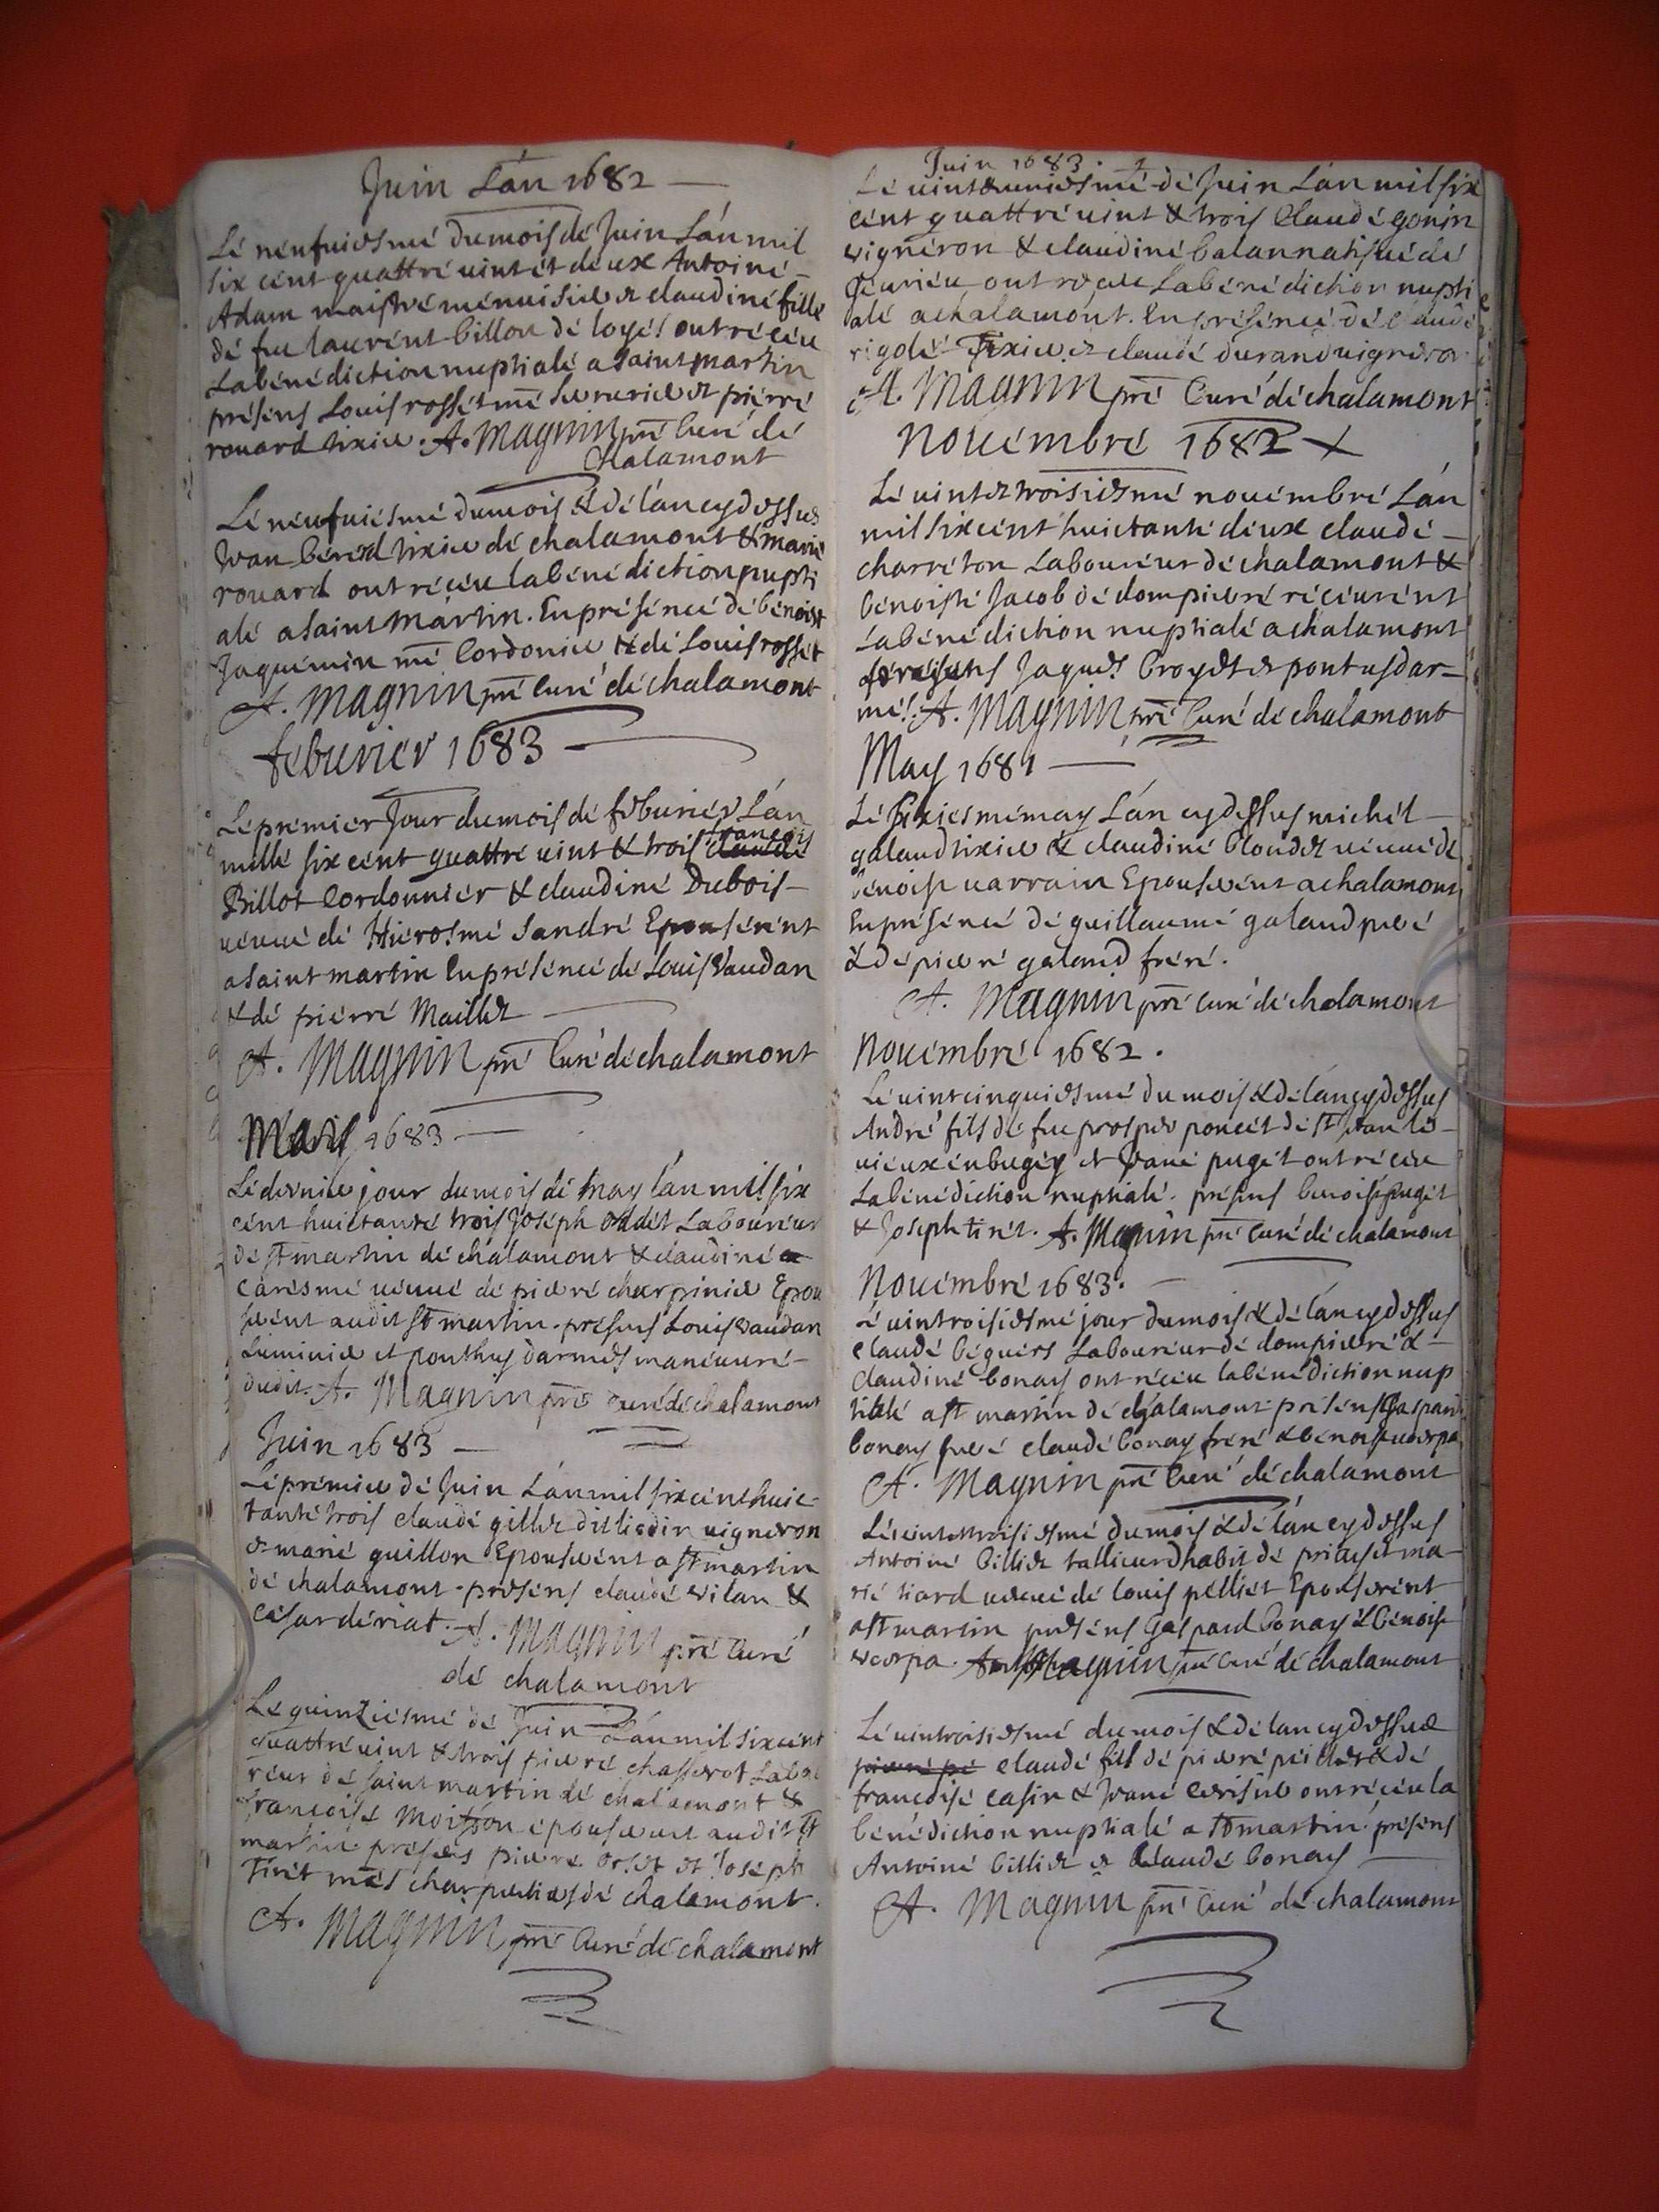 Juin Lán 1682
Lé neufuiesmé du mois dé Juin Lán mil
six cént quattré uint ét deux Antoiné
Adam maistré ménuisier et claudiné fillé
dé feu laurént billon dé loyés ont récéu
La bénédiction nuptialé a saint martin
présens Louis rossét mé serrurier et piérré
rouard tixier. A. Magnin pré Curé dé
Chalamont
Lé neufuiésmé du mois & dé lán cy dessus
Jean bérerd tixier dé chalamont & marié
rouard ont récéu la bénédiction nupti
alé a saint Martin. En préséncé dé bénoist
Jaquémin mé Cordonier & dé Louis rossét
A. Magnin pré Curé dé chalamont
féburiér 1683
Le premier Jour du mois dé féburiér Lán
millé six cent quattré uint & trois françois claudé
Billot Cordonniér & claudiné Dubois
ueuué dé Hiérosmé Sandré Epousérént
a saint martin En préséncé dé Louis Vaudan
& dé piérré Maillet
A. Magnin pré Curé dé chalamont
May 1683
Lé dernier jour du mois dé May lán mil six
cént huictanté trois Joséph oddét Laboureur
dé st martin dé chalamont & claudiné
Carésmé ueuué dé pierré charpinier Epou
serent audit st martin. présens Louis vaudan
Luminier et ponthus darmés maneuuré
dudit. A. Magnin pré Curé dé chalamont
Juin 1683
Lé prémier dé Juin Lán mil six cént huic
tanté trois claudé gillet dit lisdin uigneron
& marié guillon Epouserent a st martin
dé chalamont. présens claudé vilan &
César dériat. A. Magnin pré Curé
dé chalamont
Le quinziésmé dé Juin Lán mil six cént
quattré uint & trois pierré chasserot Labou
reur dé saint martin dé chalamont &
françoisé Moisson épouserent audit st
martin présens pierré orset et Joséph
Tirét més charpentiers dé chalamont.
A. Magnin pré Curé dé chalamont
Juin 1683.
Lé uint & uniesmé dé Juin Lán mil six
cént quattré uint & trois Claudé gonin
vignéron & claudiné balan natifué dé
Jeurieu ont réceu La béné diction nupti
alé a chalamónt. En préséncé dé claudé
rigolé Tixier et claudé durand uigneron
A. Magnin pré Curé dé chalamont
Nouémbré 1682 X
Lé uint et troisiesmé nouémbré Lán
mil six cént huictanté deux claudé
charréton Laboureur dé chalamont &
bénoisté Jacob dé dompierré récéurént
La bénédiction nuptialé a chalamont
présens Jaques Croyet et pontus dar
més. A. Magnin pré Curé dé chalamont
May 1681
Lé sixiesmé may Lán cy dessus michél
galand tixier & claudiné blondet ueuué dé
bénoist uarrain Epouserent a chalamont
En préséncé dé guillaumé galand peré
& dé pierré galand fréré.
A. Magnin pré Curé dé chalamont
Nouémbré 1682.
Lé uint cinquiesmé du mois & dé lán cy dessus
André fils dé feu prosper poncét dé st Jean lé
uieux en bugéy et Jeané pugét ont récéu
La bénédiction nuptialé. présens bénoist pugét
& Joseph tirét. A. Magnin pré Curé dé chalamont
Nouémbré 1683.
Lé uintroisiesmé jour du mois & dé lán cy dessus
claudé béguérs Laboureur dé dompierré &
claudiné bonay ont récéu la bénédiction nup
tialé a st martin dé chalamont présens Gaspard
bonay peré claudé bonay fréré & bénoist uerpa
A. Magnin pré Curé dé chalamont
Lé uint & troisiesmé du mois & dé lán cy dessus
Antoiné billiet tallieur dhabit dé priay et ma
rié tiard ueuué dé louis pélliét Epousérént
a st martin présens Gaspard bonay & bénoist
verpa. A. Magnin pré Curé dé chalamont
Lé uintroisiesmé du mois & dé lan cy dessus
pierré pé claudé fils dé pierré péiclet & dé
françoisé casin & Jeané cerisier ont récéu la
bénédiction nuptialé a st martin. présens
Antoiné billiet & Claudé bonay
A. Magnin pré Curé dé chalamont